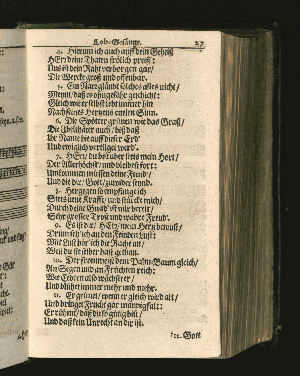 Lob-Gesänge. 27
4. Hierum ich auch auff dein Geheiß
HErr deine Thaten frölich preiß:
Und ist dein Raht verborgen gar/
Die Wercke groß und offenbar.
5. Ein Narr gläubt solches alles nicht/
Meynt/ daß es ohngefähr geschicht:
Gleich wie er selbst lebt immer hin
Nach seines Hertzens eitelen Sinn.
6. Die Spötter grünen wie das Graß/
Die Übelthäter auch/ biß daß
Ihr Name hie auff dieser Erd'
Und ewiglich vertilget werd'.
7. HErr/ du bist über sie mein Hort/
Der Allerhöchst/ und bleibst fort:
Umkommen müssen deine Feind/
Und die dir/ Gott/ zuwider seynd.
8. Hergegen so empfange ich
Stets neue Krafft/ und stärck mich/
Durch deine Gnad' ist mir bereit/
Sehr grosser Trost und wahre Freud'.
9. Es ist dir/ HErr/ mein Hertz bewust/
Drum seh' ich an den Feinden Lust:
Mit Lust hör' ich die Rache an/
Weil du sie selber hast gethan.
10. Der fromme ist dem Palm-Baum gleich/
An Segen und an Früchten reich:
Wie Cedern also wächset er/
Und blühet immer mehr und mehr.
11. Er grünet/ wenn er gleich wird alt/
Und bringet Frucht gar mannigfalt:
Er rühmt/ daß du so gütig bist/
Und daß kein Unrecht an dir ist.
12. Gott